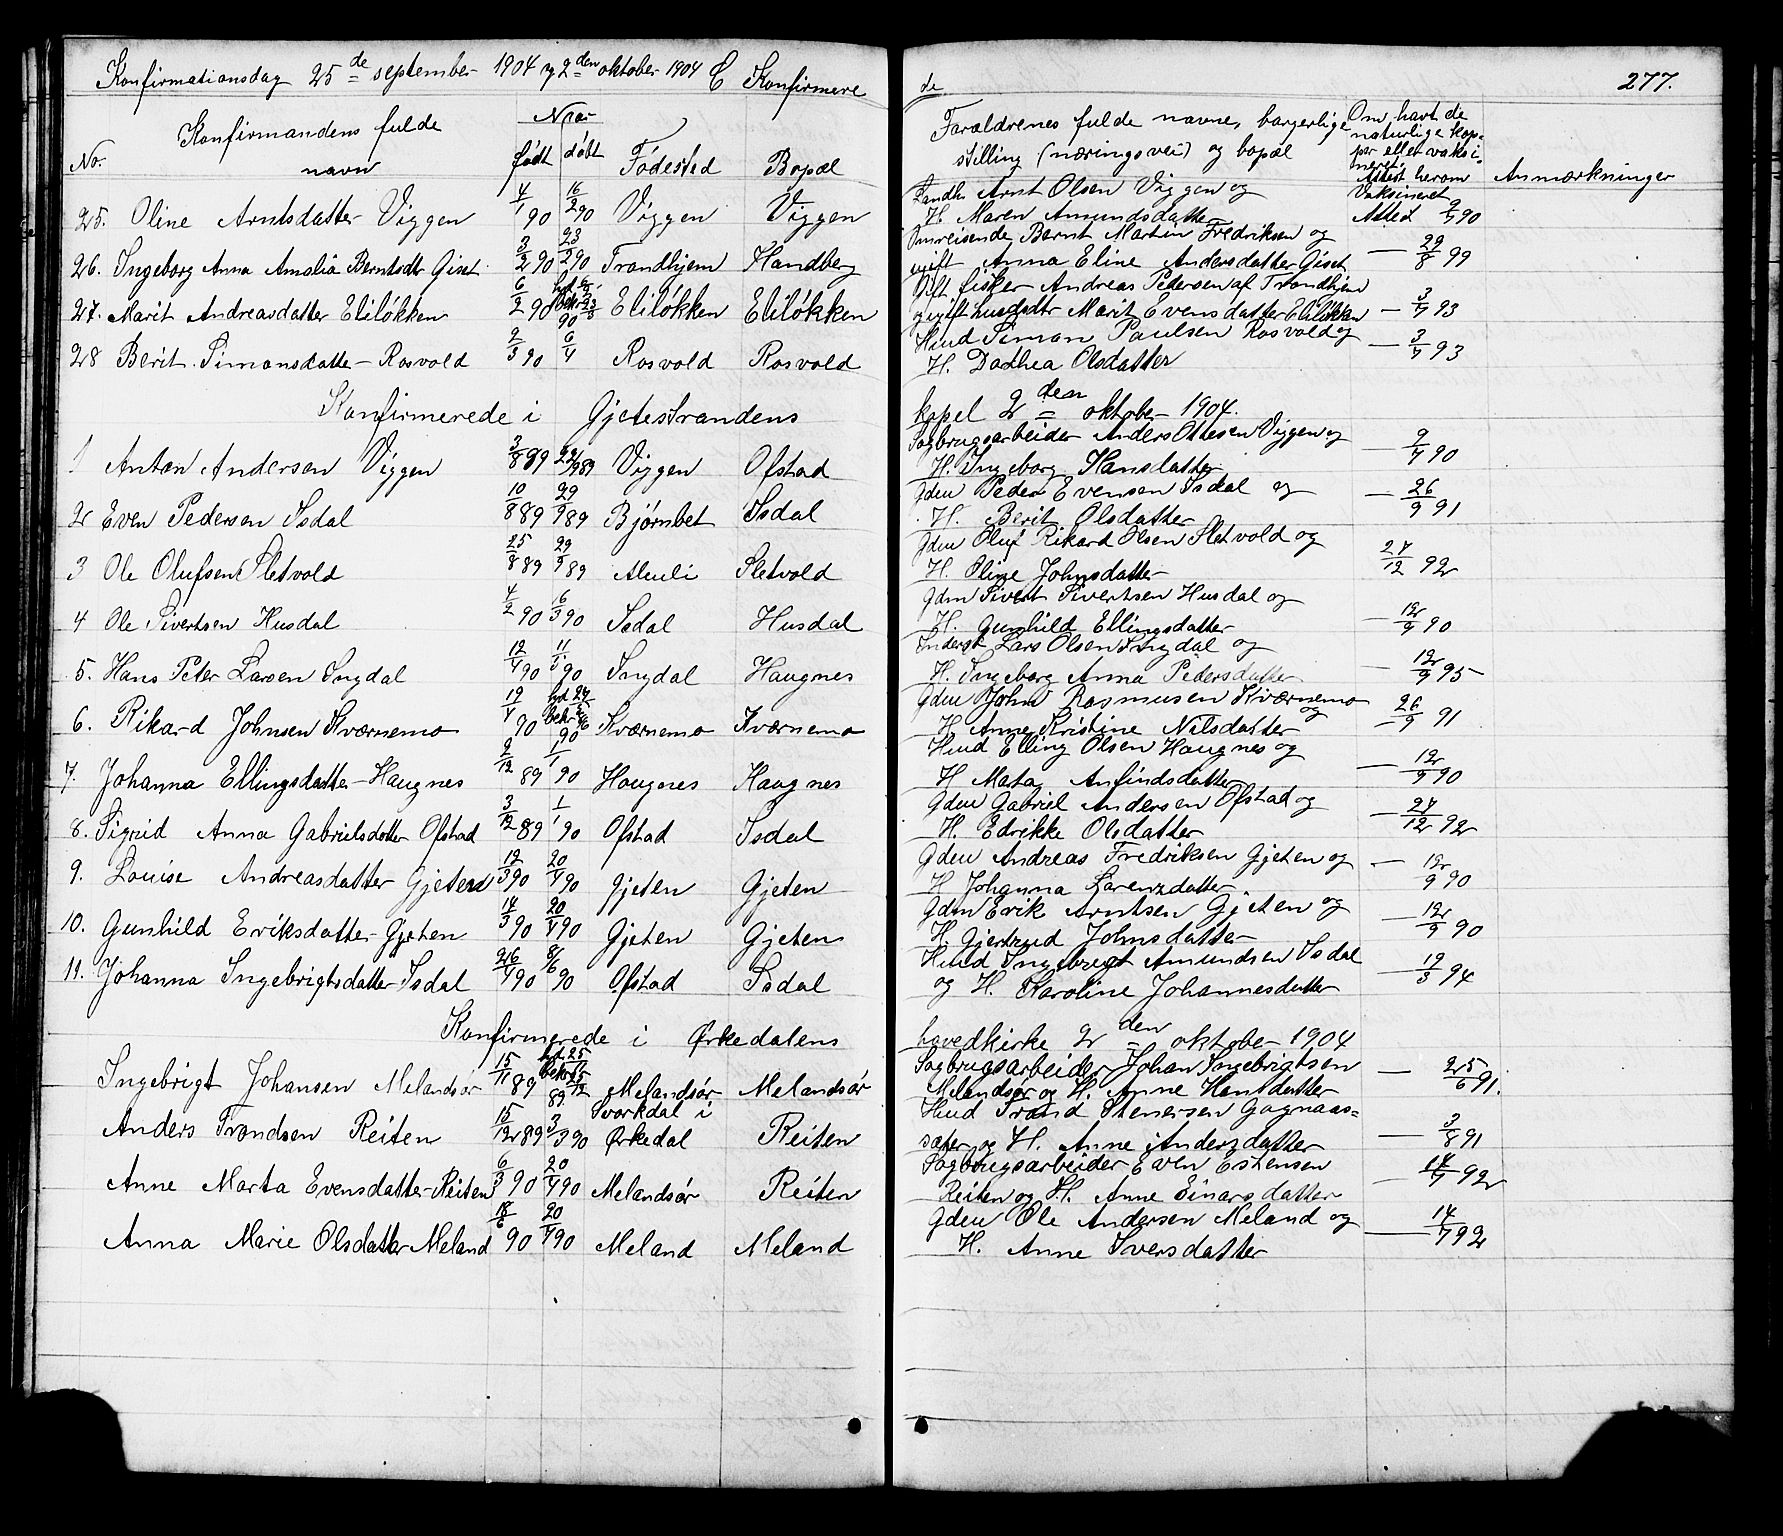 Konfirmationsdag 25de september 1904 og 2den oktober 1904 C Konfirmere de 277.
No. Konfirmandens fulde navn Naar født døbt Fødested Bopæl Forældrenes fulde navne, borgerlige stilling (næringsvei) og bopæl Om havt de naturlige kopper eller vaksineret. Attest herom Anmærkninger
25. Oline Arntsdatter Viggen 4/1 90 16/2 90 Viggen Viggen Landh. Arnt Olsen Viggen og H. Maren Amundsdatter Vaksineret Attest 9/7 90
26. Ingeborg Anna Amalia Berntsdtr Giset 3/2 90 23/2 90 Trondhjem Handberg Omreisende Bernt Martin Fredriksen og ugift Anna Eline Andersdatter Giset — 29/8 99
27. Marit Andreasdatter Eliløkken 6/2 90 Eliløkken Eliløkken Gift fisker Andreas Pedersen af Trondhjem og ugift husdtr Marit Evensdatter Eliløkken — 3/7 93
28 Berit Simonsdatter Rosvold 2/3 90 6/4 Rosvold Rosvold Hmd Simon Paulsen Rosvold og H. Dorthea Olsdatter — 3/7 93
Konfirmerede i Gjetestrandens kapel 2den oktober 1904.
1 Anton Andersen Viggen 3/8 89 22/9 89 Viggen Ofstad Sagbrugsarbeider Anders Ottesen Viggen og H. Ingeborg Hansdatter 9/7 90
2 Even Pedersen Isdal 10/8 89 29/9 89 Bjørnbet Isdal Gdm Peder Evensen Isdal og H. Berit Olsdatter — 26/9 91
3 Ole Olufsen Sletvold 25/8 89 29/9 89 Aluli Sletvold Gdm Oluf Rikard Olsen Sletvold og H. Oline Johnsdatter 27/12 92
4 Ole Sivertsen Husdal 4/2 90 16/3 90 Isdal Husdal Gdm Sivert Sivertsen Husdal og H. Gunhild Ellingsdatter — 12/9 90
5. Hans Peter Larsen Ingdal 12/4 90 11/5 90 Ingdal Haugnes Inderst Lars Olsen Ingdal og H. Ingeborg Anna Pedersdatter — 12/9 95
6. Rikard Johnsen Kværnemo 19/4 90 Kværnemo Kværnemo Gdm John Rasmusen Kværnemo og H. Anne Kristine Nilsdatter — 26/9 91
7. Johanna Ellingsdatter Haugnes 2/12 89 1/1 90 Haugnes Haugnes Hmd Elling Olsen Haugnes og H. Marta Anfindsdatter — 12/9 90
8. Sigrid Anna Gabrielsdatter Ofstad 3/12 89 1/1 90 Ofstad Isdal Gdm Gabriel Andersen Ofstad og H. Edrikke Olsdatter — 27/12 92
9. Louise Andreasdatter Gjeten 19/3 90 20/4 90 Gjeten Gjeten Gdm Andreas Fredriksen Gjeten og H Johanna Lorenzdatter — 12/9 90
10. Gunhild Eriksdatter Gjeten 14/3 90 20/4 90 Gjeten Gjeten Gdm Erik Arntsen Gjeten og H. Gjertrud Johnsdatter — 12/9 90
11. Johanna Ingebrigtsdatter Isdal 26/4 90 8/6 90 Ofstad Isdal Hmd Ingebrigt Amundsen Isdal og H. Karoline Johannesdatter — 19/3 94
Konfirmerede i Ørkedalens hovedkirke 2den oktober 1904
Ingebrigt Johansen Melandsør 15/11 89 Melandsør Melandsør Sagbrugsarbeider Johan Ingebrigtsen Melandsør og H. Anne Hansdatter — 25/6 91.
Anders Trondsen Reiten 15/12 89 3/3 90 Svorkdal i Ørkedal Reiten Hmd Trond Stenersen Gagnaassæter og H. Anne Andersdatter — 3/8 91
Anne Marta Evensdatter Reiten 6/3 90 20/4 90 Melandsør Reiten Sagbrugsarbeider Even Estensen Reiten og H. Anne Einarsdatter — 14/7 92
Anna Marie Olsdatter Meland 18/6 90 20/4 90 Meland Meland Gdm Ole Andersen Meland og H. Anne Iversdatter — 14/7 92